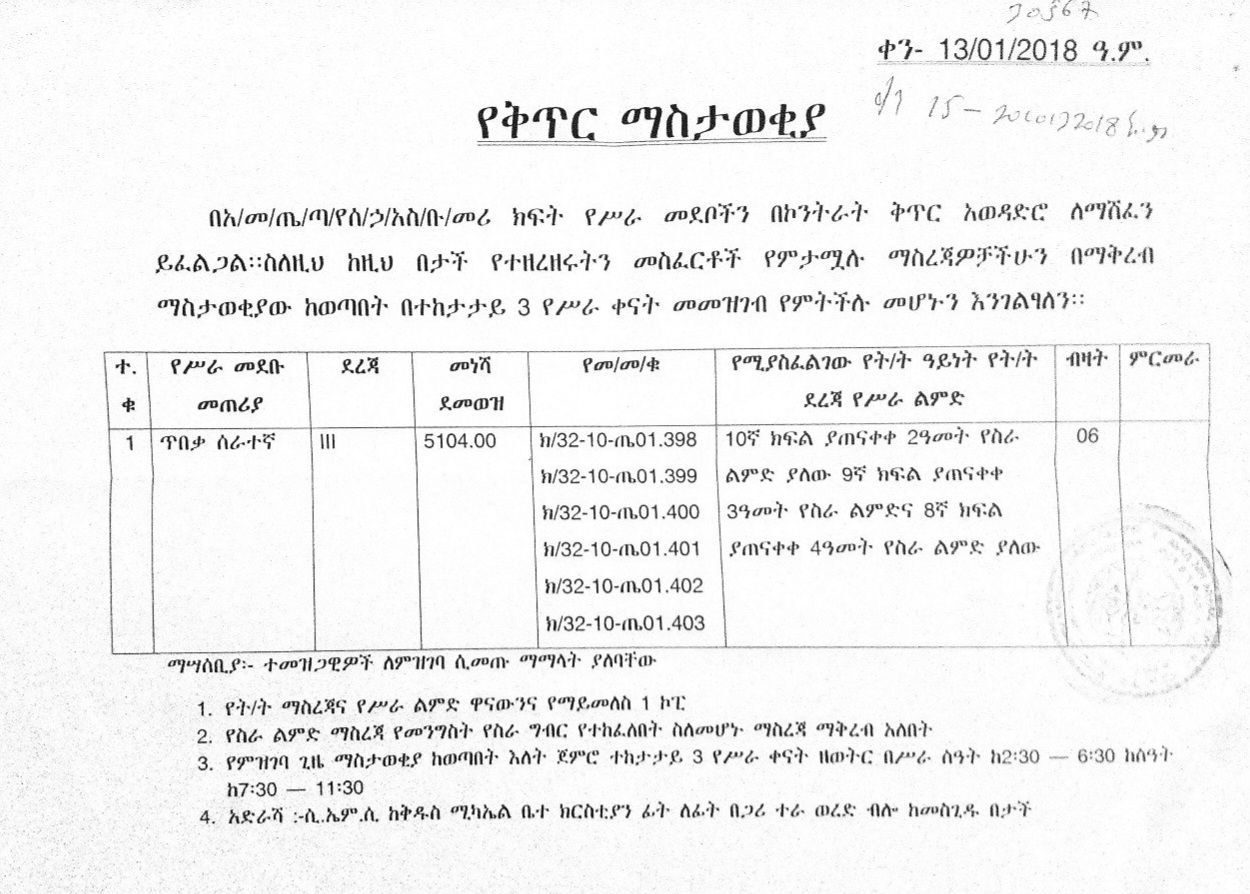 ቀን- 13/01/2018 ዓ.ም.
የቅጥር ማስታወቂያ
በአ/መ/ጤ/ጣ/የስ/ኃ/አስ/ቡ/መሪ ክፍት የሥራ መደቦችን በኮንትራት ቅጥር አወዳድሮ ለማሽፈን
ይፈልጋል፡፡ስለዚህ ከዚህ በታች የተዘረዘሩትን መስፈርቶች የምታሟሉ ማስረጃዎቻችሁን በማቅረብ
ማስታወቂያው ከወጣበት በተከታታይ 3 የሥራ ቀናት መመዝገብ የምትችሉ መሆኑን እንገልፃለን፡፡
ተ.ቁ የሥራ መደቡ መጠሪያ ደረጃ መነሻ ደመወዝ የመ/መ/ቁ የሚያስፈልገው የት/ት ዓይነት የት/ት ደረጃ የሥራ ልምድ ብዛት ምርመራ
1 ጥበቃ ሰራተኛ III 5104.00 ክ/32-10-ጤ01.398 10ኛ ክፍል ያጠናቀቀ 2ዓመት የስራ 06
ክ/32-10-ጤ01.399 ልምድ ያለው 9ኛ ክፍል ያጠናቀቀ
ክ/32-10-ጤ01.400 3ዓመት የስራ ልምድና 8ኛ ክፍል
ክ/32-10-ጤ01.401 ያጠናቀቀ 4ዓመት የስራ ልምድ ያለው
ክ/32-10-ጤ01.402
ክ/32-10-ጤ01.403
ማሣሰቢያ፡- ተመዝጋዊዎች ለምዝገባ ሲመጡ ማማላት ያለባቸው
1. የት/ት ማስረጃና የሥራ ልምድ ዋናውንና የማይመለስ 1 ኮፒ
2. የስራ ልምድ ማስረጃ የመንግስት የስራ ግብር የተከፈለበት ስለመሆኑ ማስረጃ ማቅረብ አለበት
3. የምዝገባ ጊዜ ማስታወቂያ ከወጣበት እለት ጀምሮ ተከታታይ 3 የሥራ ቀናት ዘወትር በሥራ ሰዓት ከ2፡30 — 6፡30 ከሰዓት
ከ7፡30 — 11፡30
4. አድራሻ :-ሲ.ኤም.ሲ ከቅዱስ ሚካኤል ቤተ ክርስቲያን ፊት ለፊት በጋሪ ተራ ወረድ ብሎ ከመስጊዱ በታች